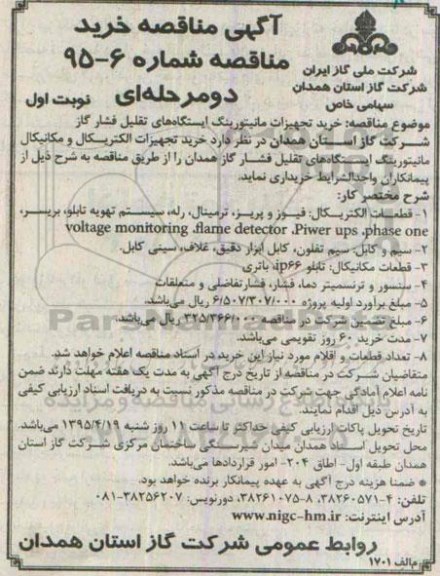 آگهی مناقصه خرید
مناقصه شماره ۶-۹۵
دومرحله‌ای
نوبت اول
شرکت ملی گاز ایران
شرکت گاز استان همدان
سهامی خاص
موضوع مناقصه: خرید تجهیزات مانیتورینگ ایستگاه‌های تقلیل فشار گاز
شرکت گاز استان همدان در نظر دارد خرید تجهیزات الکتریکال و مکانیکال
مانیتورینگ ایستگاه‌های تقلیل فشار گاز همدان را از طریق مناقصه به شرح ذیل از
پیمانکاران واجدالشرایط خریداری نماید.
شرح مختصر کار:
۱- قطعات الکتریکال: فیوز و پریز، ترمینال، رله، سیستم تهویه تابلو، بریسر،
voltage monitoring ،flame detector ،Piwer ups ،phase one
۲- سیم و کابل: سیم تفلون، کابل ابزار دقیق، غلاف، سینی کابل.
۳- قطعات مکانیکال: تابلو ip۶۶، باتری
۴- سنسور و ترنسمیتر دما، فشار، فشار تفاضلی و متعلقات
۵- مبلغ برآورد اولیه پروژه ۶/۵۰۷/۳۰۷/۰۰۰ ریال می‌باشد.
۶- مبلغ تضمین شرکت در مناقصه ۳۲۵/۳۶۶/۰۰۰ ریال می‌باشد.
۷- مدت خرید ۶۰ روز تقویمی می‌باشد.
۸- تعداد قطعات و اقلام مورد نیاز این خرید در اسناد مناقصه اعلام خواهد شد.
متقاضیان شرکت در مناقصه از تاریخ درج آگهی به مدت یک هفته مهلت دارند ضمن
نامه اعلام آمادگی جهت شرکت در مناقصه مذکور نسبت به دریافت اسناد ارزیابی کیفی
به آدرس ذیل اقدام نمایند.
تاریخ تحویل پاکات ارزیابی کیفی حداکثر تا ساعت ۱۱ روز شنبه ۱۳۹۵/۴/۱۹ می‌باشد.
محل تحویل اسناد همدان میدان شیرسنگی ساختمان مرکزی شرکت گاز استان
همدان طبقه اول- اطاق ۲۰۴- امور قراردادها می‌باشد.
* ضمنا هزینه درج آگهی به عهده پیمانکار برنده خواهد بود.
تلفن: ۴-۳۸۲۶۰۵۷۱، ۸-۳۸۲۶۱۰۷۵، دورنویس: ۳۸۲۵۶۲۰۷-۰۸۱
آدرس اینترنت: www.nigc-hm.ir
روابط عمومی شرکت گاز استان همدان
م‌الف ۱۷۰۱
ParsNamadData